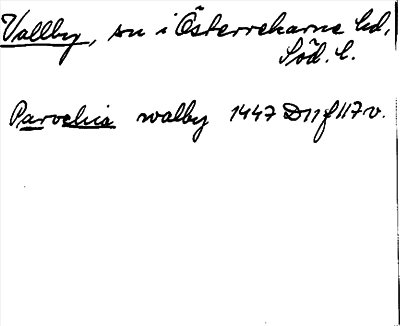 Vallby, sn i Österrekarne hd,
Söd. l.
Parvelus walby 1447 D11 f 117 v.